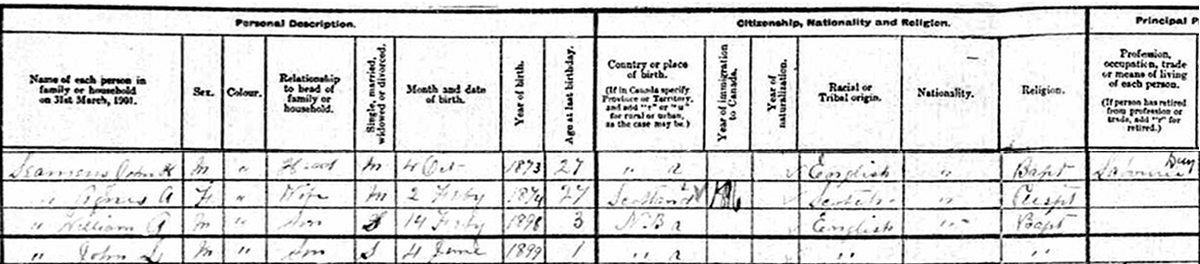 Personal Description. Citizenship, Nationality and Religion. Principal P
Name of each person in family or household on 31st March, 1901.
Sex.
Colour.
Relationship to head of family or household.
Single, married, widowed or divorced.
Month and date of birth.
Year of birth.
Age at last birthday.
Country or place of birth.
(If in Canada specify Province or Territory, and add "r" or "u" for rural or urban, as the case may be.)
Year of immigration to Canada.
Year of naturalization.
Racial or Tribal origin.
Nationality.
Religion.
Profession, occupation, trade or means of living of each person.
(If person has retired from profession or trade, add "r" for retired.)
M " Head M 4 Oct 1873 27 " English " Bapt
" Agnes A F " Wife M 2 Feby 1874 27 Scotland Scotch "
" William M " Son S 14 Feby 3 N.B English " Bapt
" John L M " Son S 4 June 1899 1 " " " "